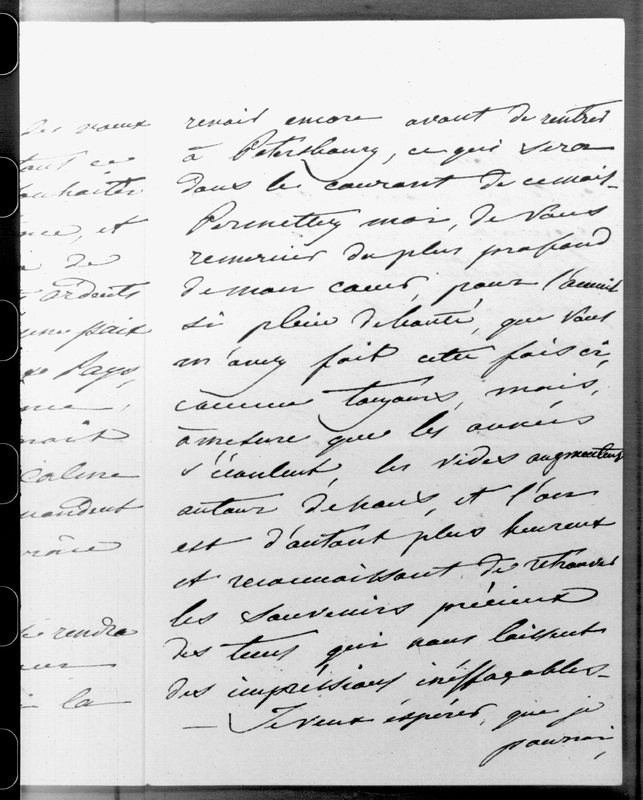 les vœux
tant ce
souhaiter
et
de
ardents
une paix
Pays,
calme
mandent
rendra
la
revoir encore avant de rentrer
à Petersbourg, ce qui sera
dans le courant de ce mois.
Permettez moi, de Vous
remercier du plus profond
de mon cœur, pour l'accueil
si plein de bonté, que Vous
m'avez fait cette fois ci,
comme toujours, mais,
à mesure que les années
s'écoulent, les vides augmentent
autour de nous, et l'on
est d'autant plus heureux
et reconnaissant de retrouver
les souvenirs précieux
des tems qui nous laissent
des impressions inéffaçables —
— Je veux éspérer, que je
pourrai,